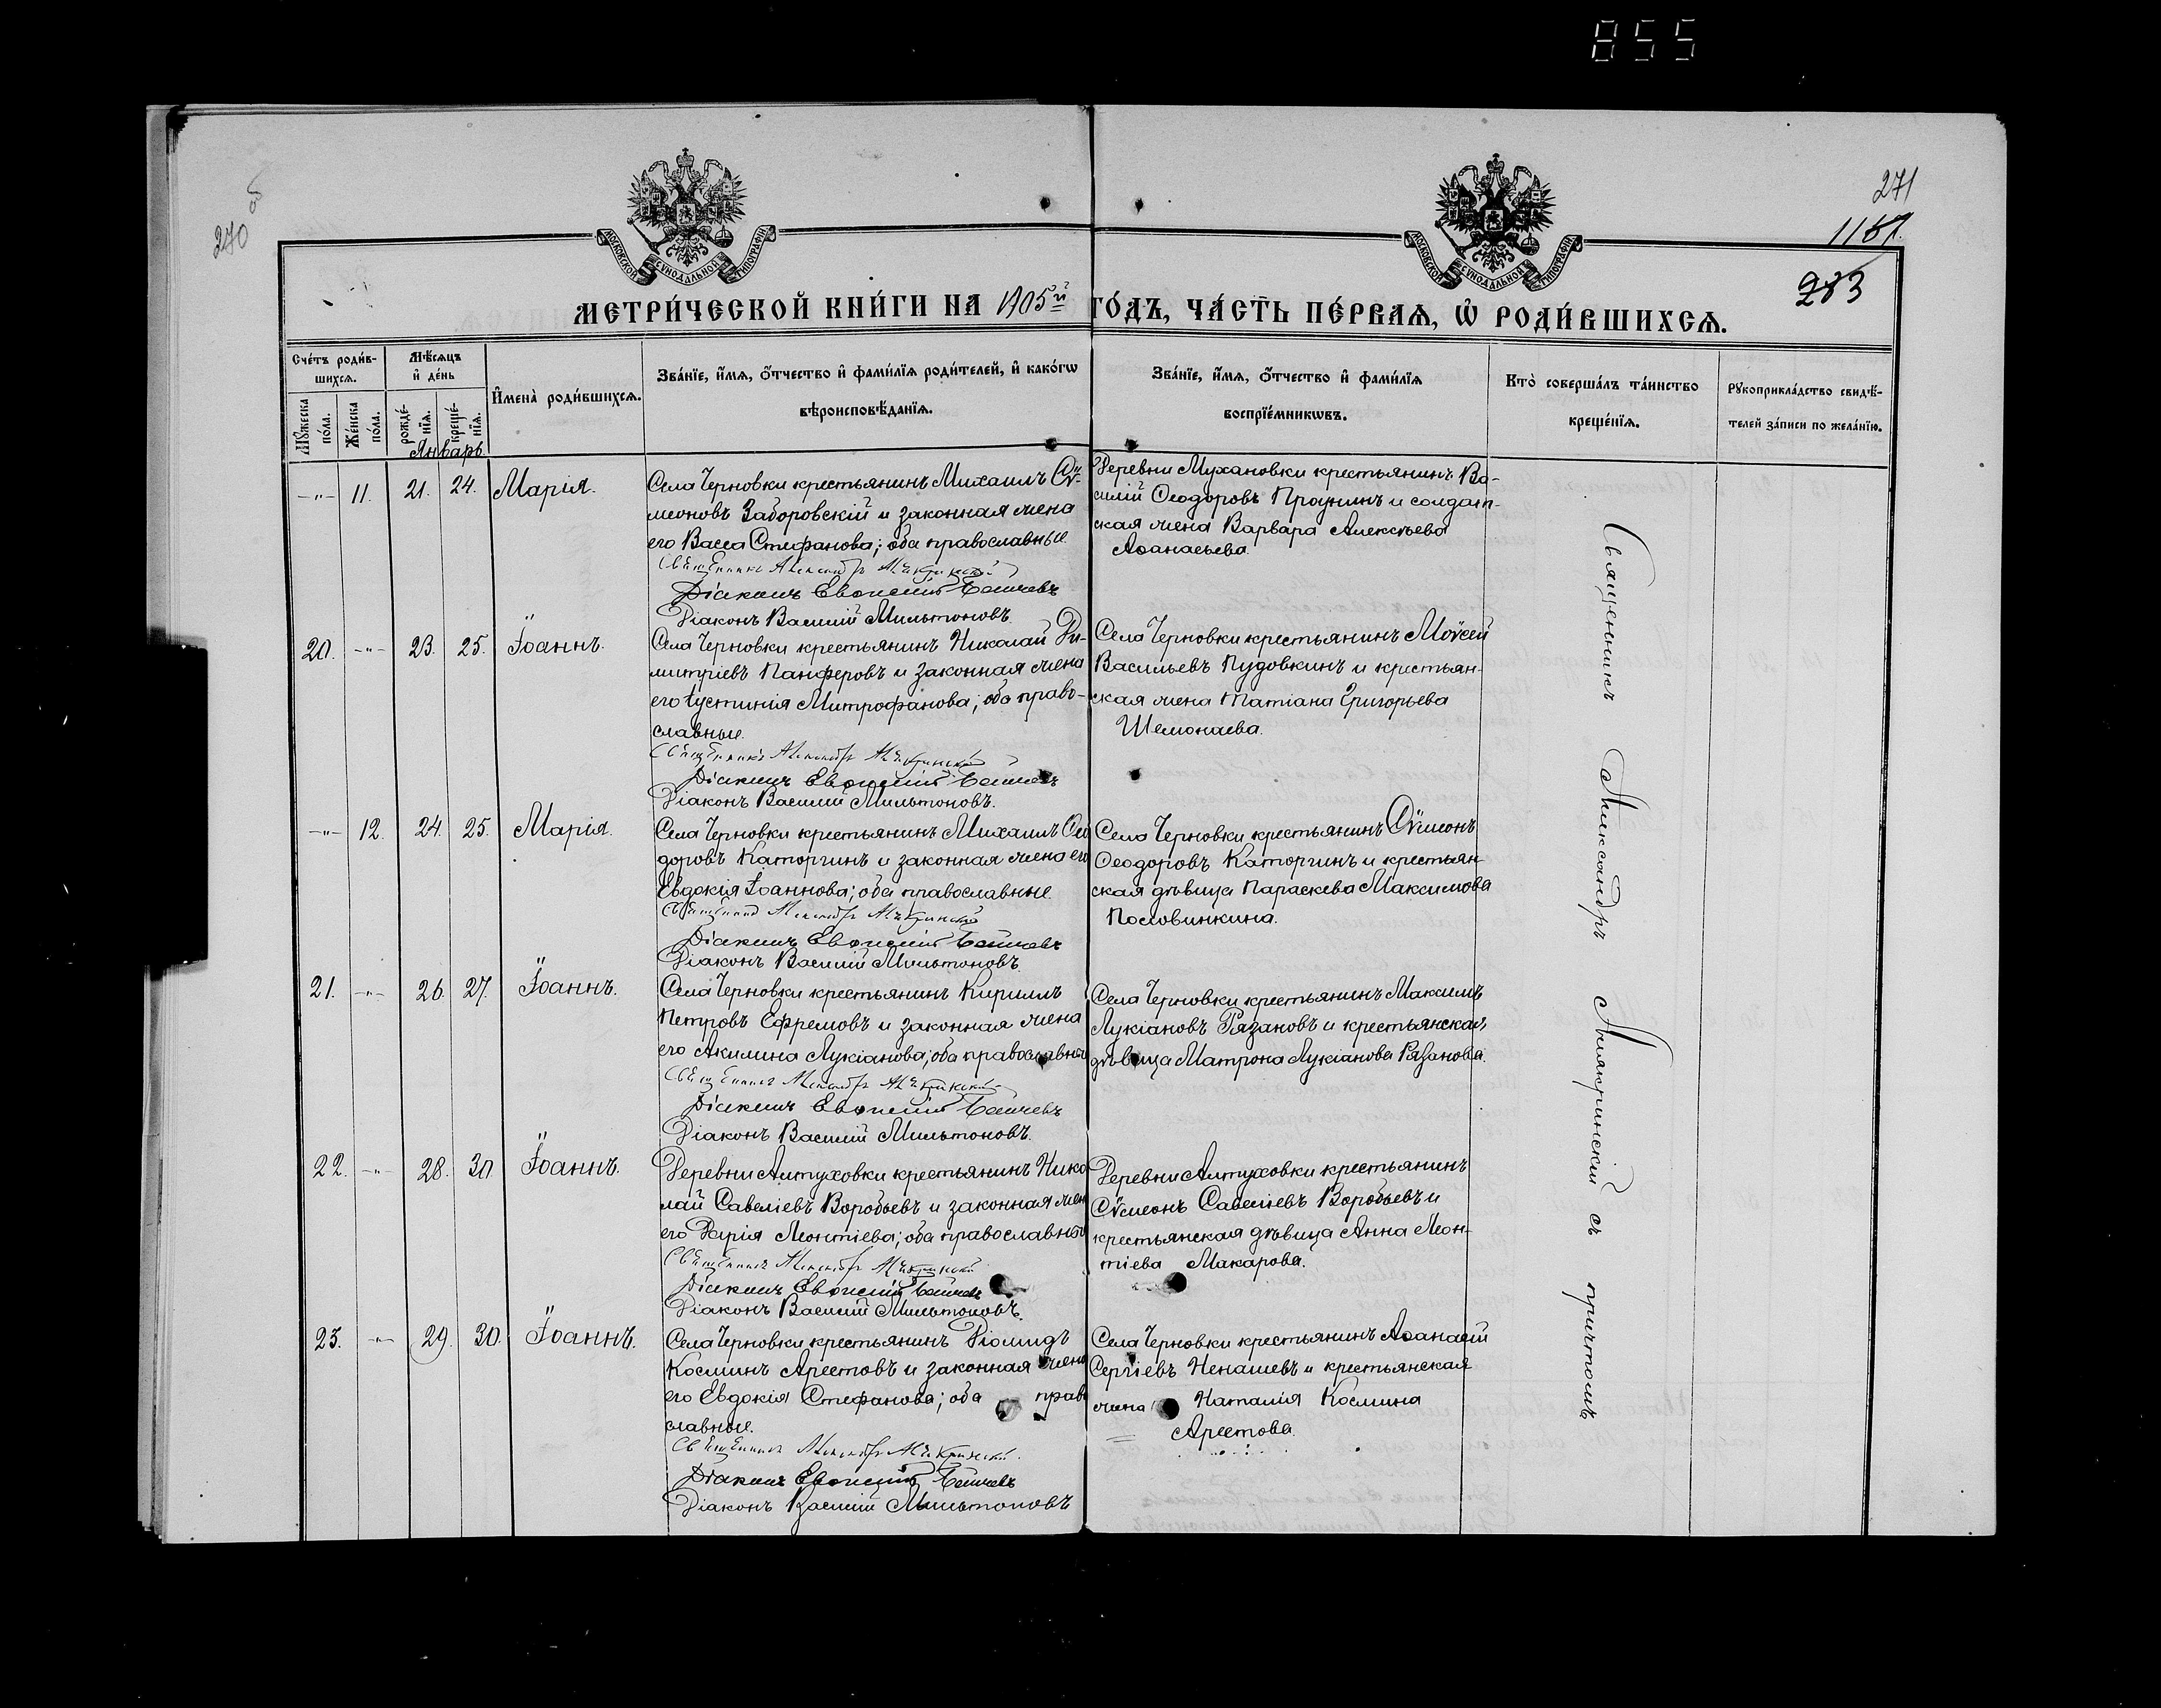 855
270 об
271
1167.
283
МОСКОВСКОЙ СѴНОДАЛЬНОЙ ТИПОГРАФІИ
МОСКОВСКОЙ СѴНОДАЛЬНОЙ ТИПОГРАФІИ
МЕТРИ́ЧЕСКОЙ КНИ́ГИ НА 1905й ГО́ДЪ, ЧА́СТЬ ПЕ́РВАѦ, Ѡ҆ РОДИ́ВШИХСѦ.
Сче́тъ роди́в-
шихсѧ.
Мѣ́сѧцъ
и҆ де́нь
И҆мена̀ роди́вшихсѧ.
Зва́нїе, и҆́мѧ, ѻ҆́тчество и҆ фами́лїѧ роди́телей, и҆ како́гѡ
вѣроисповѣ́данїѧ.
Зва́нїе, и҆́мѧ, ѻ҆́тчество и҆ фами́лїѧ
воспрїе́мникѡвъ.
Кто̀ соверша́лъ та́инство
креще́нїѧ.
Рꙋкоприкла́дство свидѣ́-
телей за́писи по жела́нїю.
Мꙋ́жеска
по́ла.
Же́нска
по́ла.
рожде́-
нїѧ.
креще́-
нїѧ.
Январь.
-"- 11. 21. 24. Марія.
Села Черновки крестьянинъ Михаилъ Сѵ-
меоновъ Заборовскій и законная жена
его Васса Стефанова; оба православные.
Священникъ Александръ
Діаконъ Евѳимій
Діаконъ Василій Мильтоновъ.
Деревни Мухановки крестьянинъ Ва-
силій Ѳеодоровъ Пронинъ и солдат-
ская жена Варвара Алексѣева
Аѳанасьева.
20. -"- 23. 25. Іоаннъ.
Села Черновки крестьянинъ Николай Ди-
митріевъ Панферовъ и законная жена
его Іустинія Митрофанова; оба право-
славные.
Священникъ Александръ
Діаконъ Евѳимій
Діаконъ Василій Мильтоновъ.
Села Черновки крестьянинъ Моѵсей
Васильевъ Пудовкинъ и крестьян-
ская жена Татіана Григорьева
Шемонаева.
-"- 12. 24. 25. Марія.
Села Черновки крестьянинъ Михаилъ Ѳео
доровъ Каторгинъ и законная жена его
Евдокія Іоаннова; оба православные.
Священникъ Александръ
Діаконъ Евѳимій
Діаконъ Василій Мильтоновъ.
Села Черновки крестьянинъ Сѵмеонъ
Ѳеодоровъ Каторгинъ и крестьян-
ская дѣвица Параскева Максимова
Пословинкина.
21. -"- 26. 27. Іоаннъ.
Села Черновки крестьянинъ Кириллъ
Петровъ Ефремовъ и законная жена
его Акилина Лукіанова; оба православны
Священникъ Александръ
Діаконъ Евѳимій
Діаконъ Василій Мильтоновъ.
Села Черновки крестьянинъ Максимъ
Лукіановъ Рязановъ и крестьянская
дѣвица Матрона Лукіанова Рязанова.
22. -"- 28. 30. Іоаннъ.
Деревни Алтуховки крестьянинъ Нико
лай Савеліевъ Воробьевъ и законная жен
его Дарія Леонтіева; оба православны
Священникъ Александръ
Діаконъ Евѳимій
Діаконъ Василій Мильтоновъ.
Деревни Алтуховки крестьянинъ
Сѵмеонъ Савеліевъ Воробьевъ и
крестьянская дѣвица Анна Леон-
тіева Макарова.
23. -"- 29. 30. Іоаннъ.
Села Черновки крестьянинъ Діомидъ
Косминъ Арестовъ и законная жена
его Евдокія Стефанова; оба право
славные.
Священникъ Александръ
Діаконъ Евѳимій
Діаконъ Василій Мильтоновъ
Села Черновки крестьянинъ Аѳанасій
Сергіевъ Ненашевъ и крестьянская
жена Наталія Космина
Арестова.
Священникъ Александръ съ причтомъ